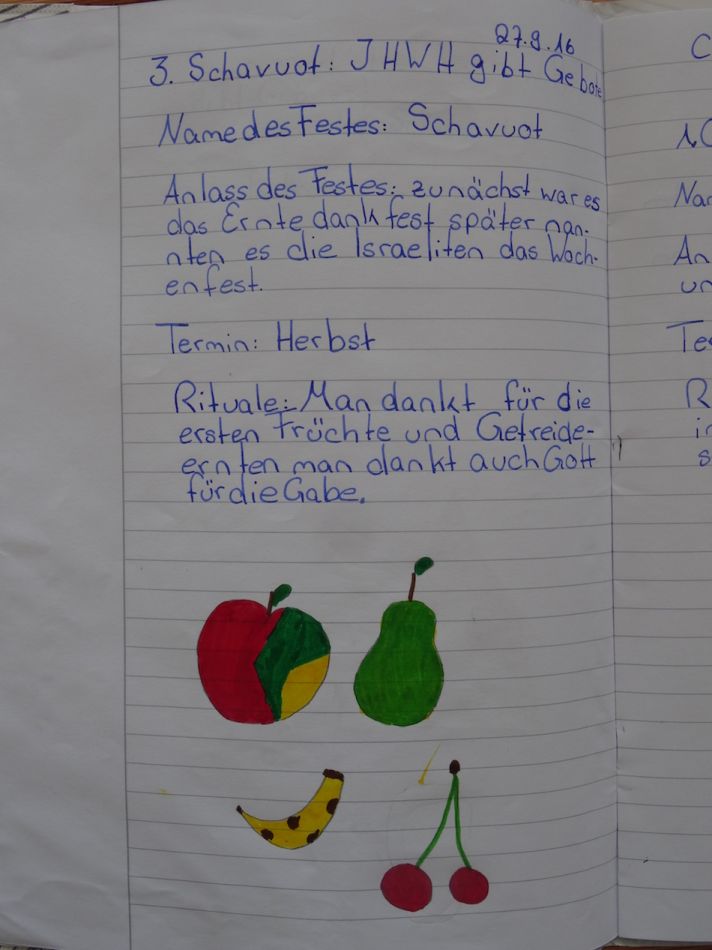 27.9.16
3. Schavuot: JHWH gibt Gebote
Name des Festes: Schavuot
Anlass des Festes: zunächst war es
das Erntedankfest später nan-
nten es die Israeliten das Woch-
enfest.
Termin: Herbst
Rituale: Man dankt für die
ersten Früchte und Getreide-
ernten man dankt auch Gott
für die Gabe.
C
Na
An
un
Te
R
i
s